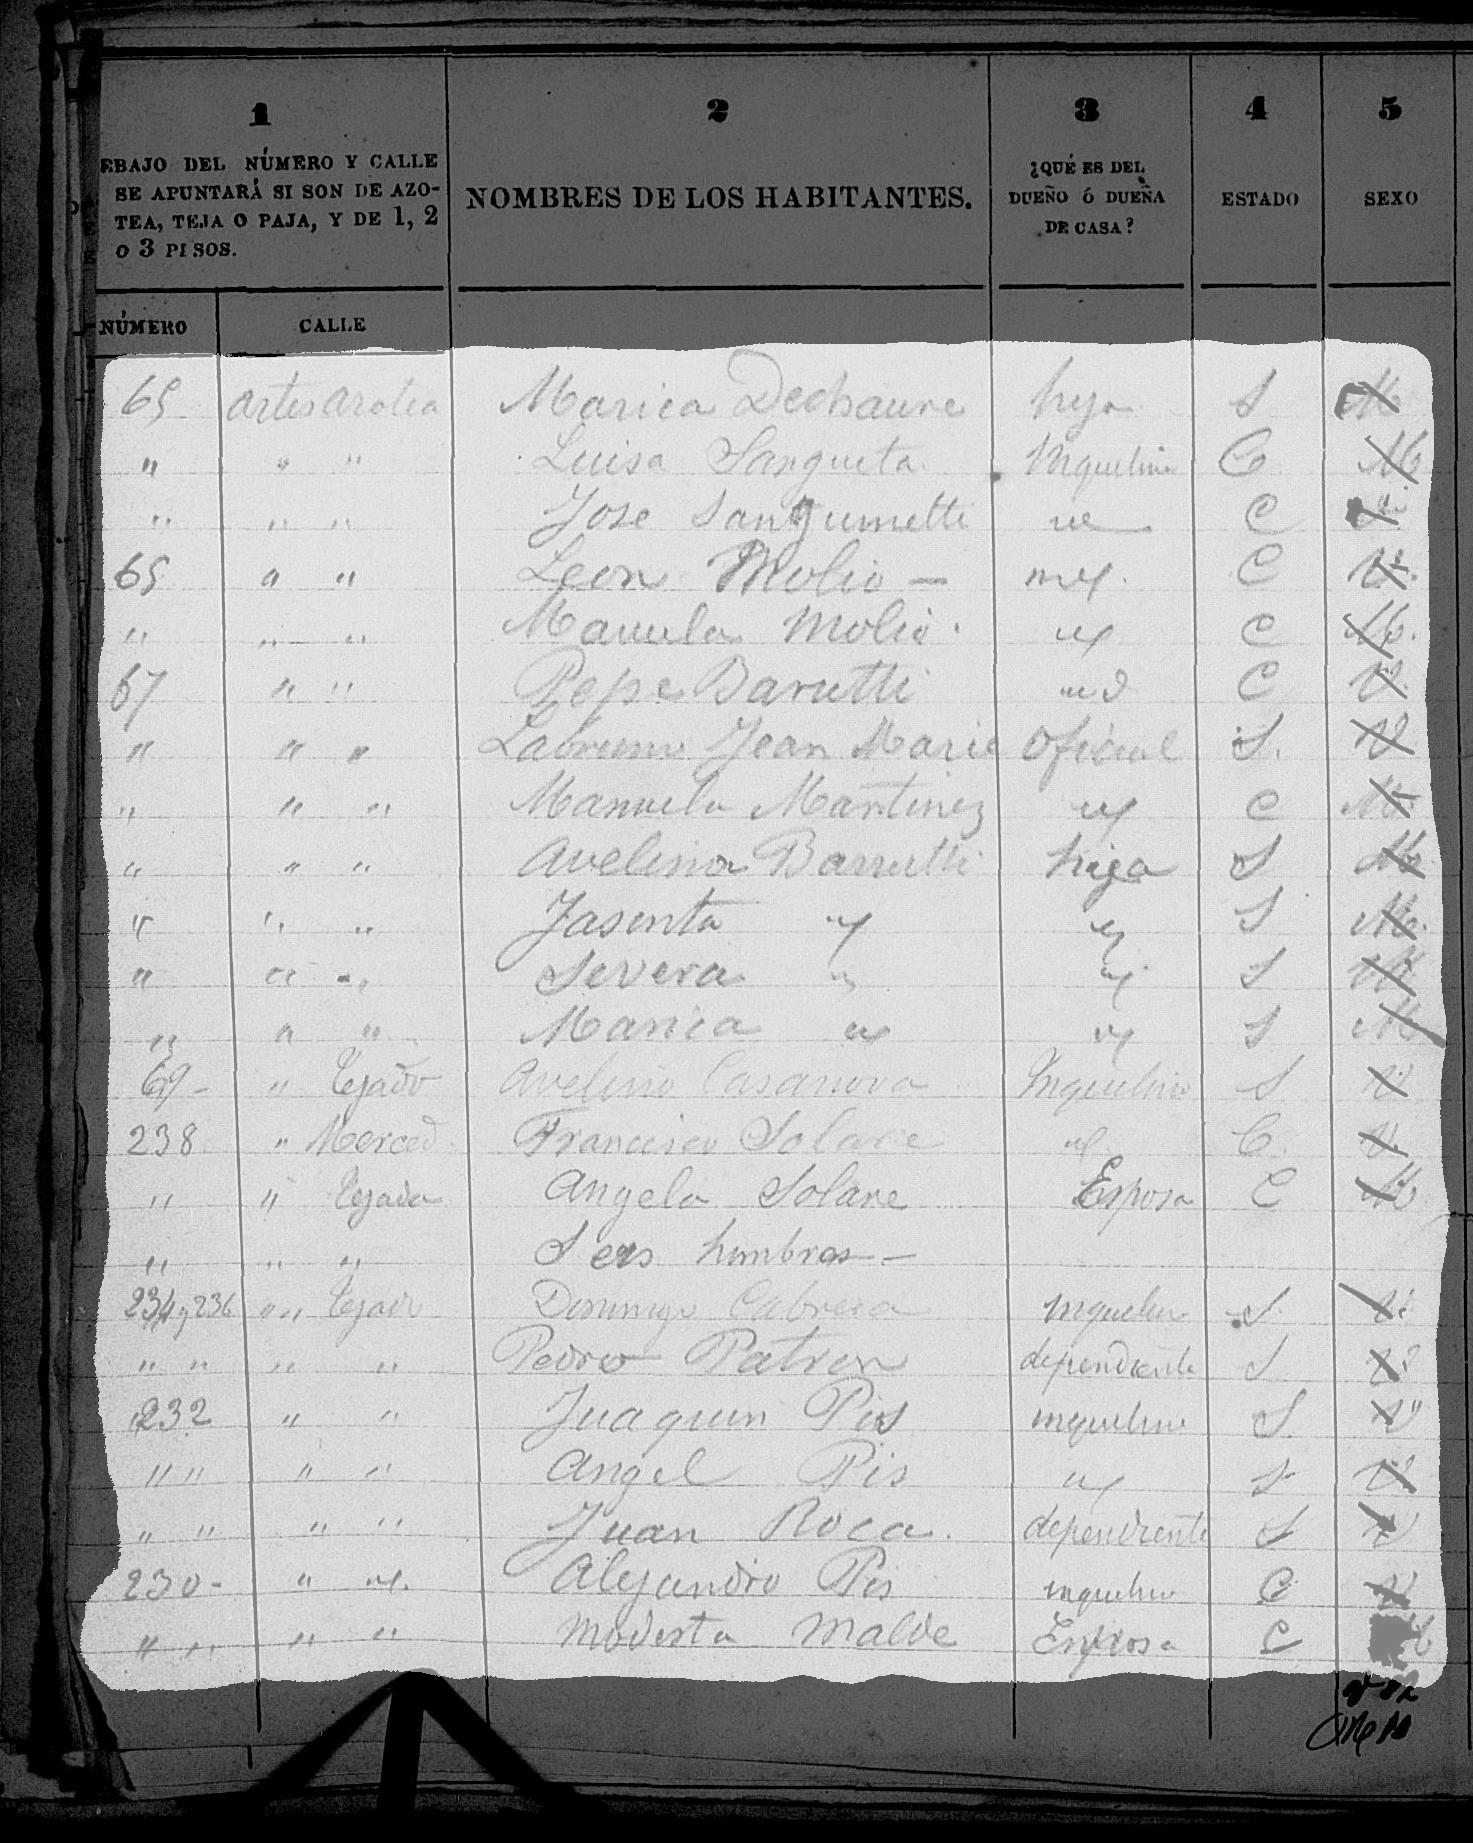 1 2 3 4 5
EBAJO DEL NÚMERO Y CALLE
SE APUNTARÁ SI SON DE AZO-
TEA, TEJA O PAJA, Y DE 1, 2
O 3 PISOS.
NOMBRES DE LOS HABITANTES.
¿QUÉ ES DEL
DUEÑO Ó DUEÑA
DE CASA?
ESTADO
SEXO
NÚMERO CALLE
65 Artes Azotea Marica Dechaure hija S M
" " " Luisa Sangueta Inquilina C M
" " " Jose Sanguinetti C
65 " " Leon Molio — C V
" " " Manuela Molio. C M.
67 " " Pepe Barutti C V
" " " Jean Marie Oficial S. V
" " " Manuela Martinez C M
" " " Avelina Barrutti hija S M
" " " Jasinta " " S M.
" " " Severa " " S M
" " " Marica " " S M
69- " Tejado Avelino Casanova Inquilino S V
238 " Merced Francisco Solare " C V.
" " Tejada Angela Solare Esposa C M
" " " Seis hombres —
234 y 236 " " Tejado Domingo Cabrera inquilino S. V
" " " " Pedro Patron dependiente S V
232 " " Juaquin Pis inquilino S. V
" " " " Angel Pis " S V
" " " " Juan Roca. dependiente S V
230- " " Alejandro Pis inquilino C V
" " " " Modesta Malde Esposa C